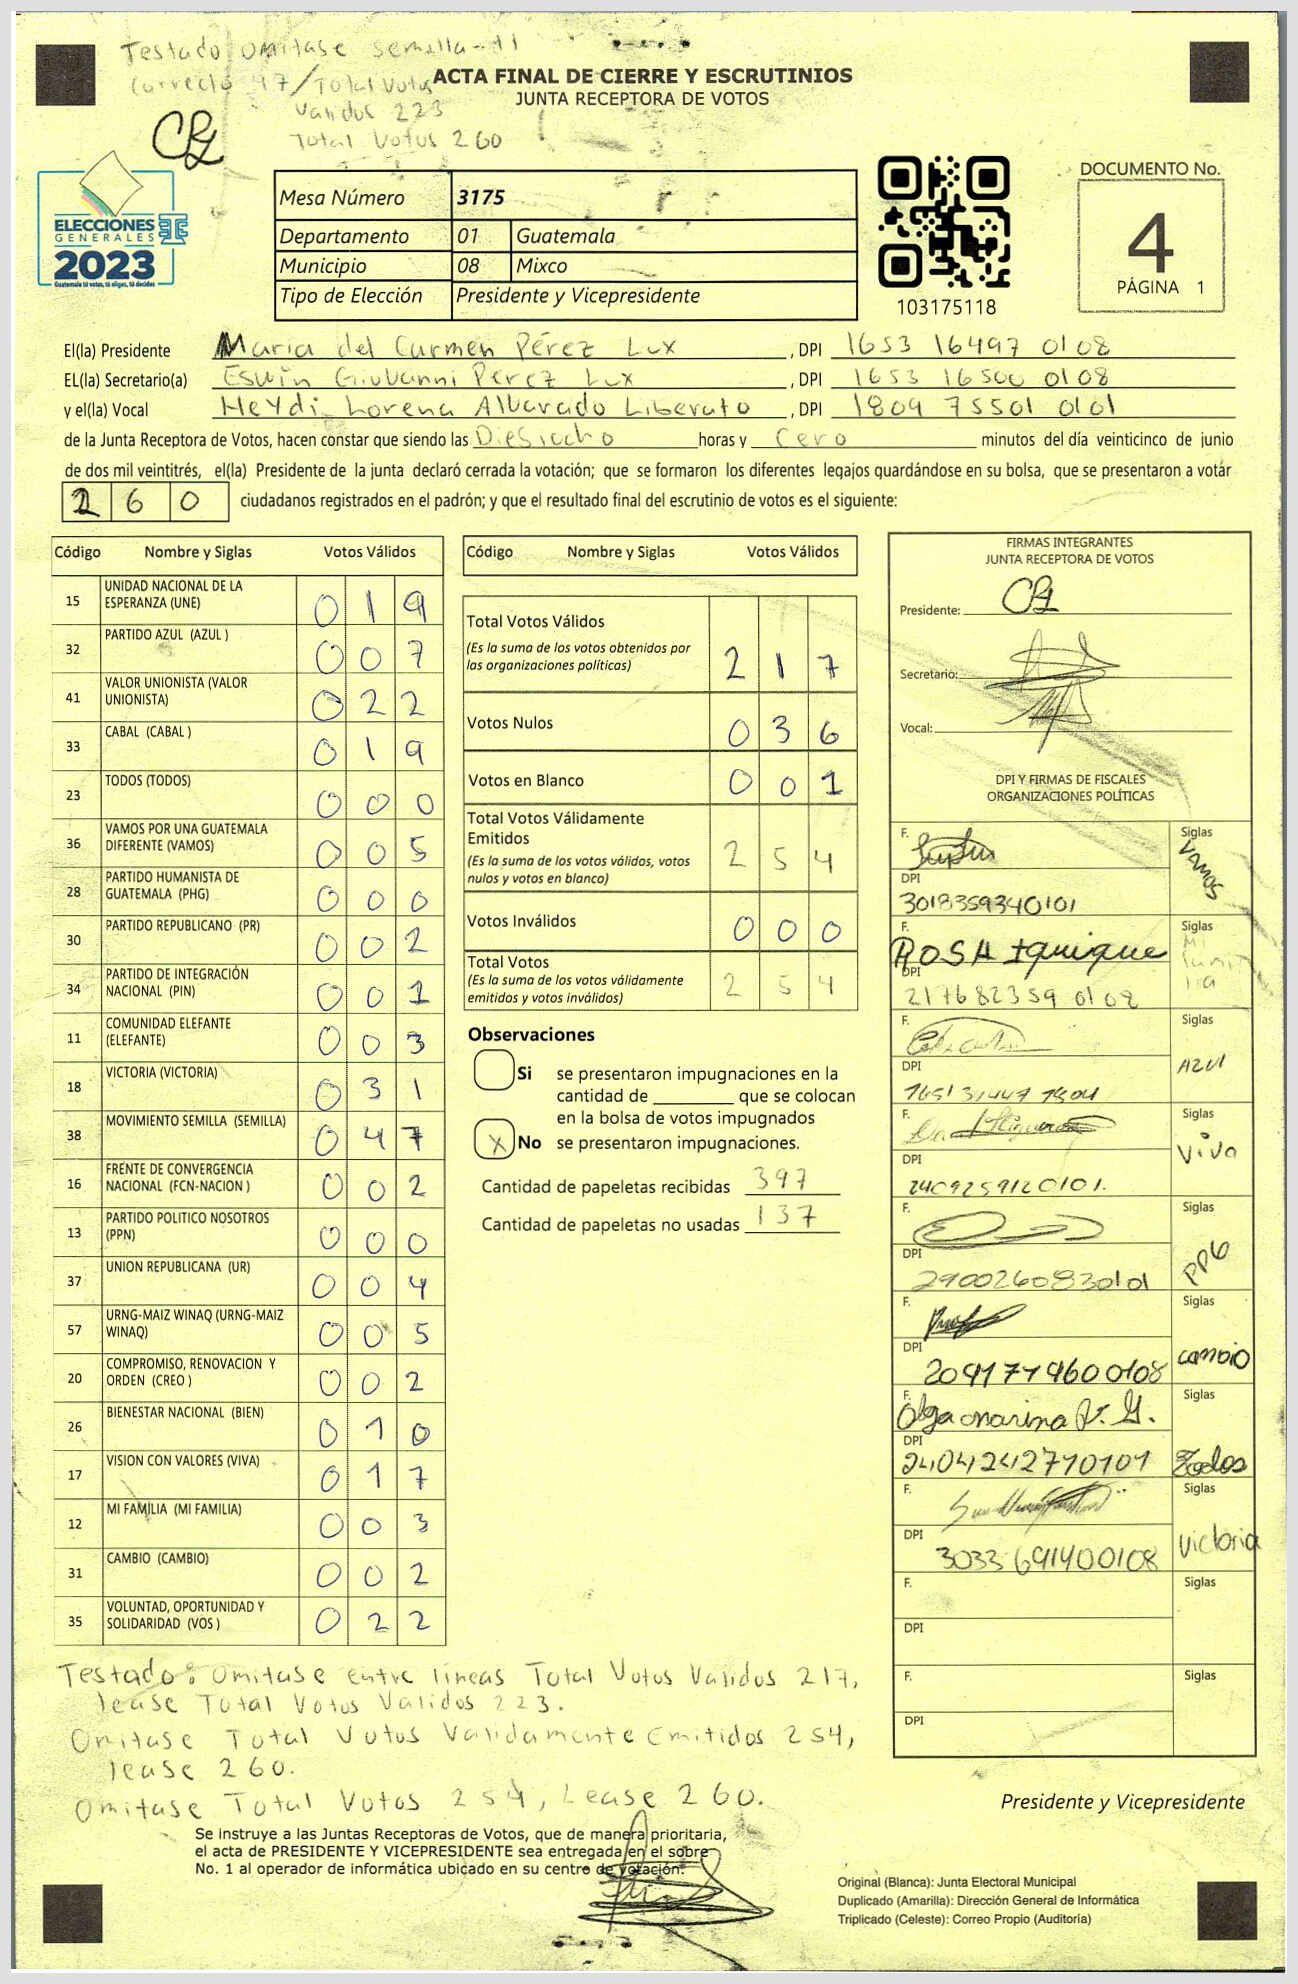 Testado Omitase Semilla - 11
Correcto 47 / Total Votos
Validos 223
Total Votos 260
ACTA FINAL DE CIERRE Y ESCRUTINIOS
JUNTA RECEPTORA DE VOTOS
ELECCIONES
GENERALES
2023
Guatemala tú votas, tú eliges, tú decides
Mesa Número 3175
Departamento 01 Guatemala
Municipio 08 Mixco
Tipo de Elección Presidente y Vicepresidente
103175118
DOCUMENTO No.
4
PÁGINA 1
El(la) Presidente Maria del Carmen Pérez Lux , DPI 1653 16497 0108
EL(la) Secretario(a) Eswin Giovanni Perez Lux , DPI 1653 16500 0108
y el(la) Vocal Heydi Lorena Alvarado Liberato , DPI 1809 75501 0101
de la Junta Receptora de Votos, hacen constar que siendo las Diesiocho horas y cero minutos del día veinticinco de junio
de dos mil veintitrés, el(la) Presidente de la junta declaró cerrada la votación; que se formaron los diferentes legajos guardándose en su bolsa, que se presentaron a votar
260 ciudadanos registrados en el padrón; y que el resultado final del escrutinio de votos es el siguiente:
Código Nombre y Siglas Votos Válidos
15 UNIDAD NACIONAL DE LA
ESPERANZA (UNE) 019
32 PARTIDO AZUL (AZUL ) 007
41 VALOR UNIONISTA (VALOR
UNIONISTA) 022
33 CABAL (CABAL ) 019
23 TODOS (TODOS) 000
36 VAMOS POR UNA GUATEMALA
DIFERENTE (VAMOS) 005
28 PARTIDO HUMANISTA DE
GUATEMALA (PHG) 000
30 PARTIDO REPUBLICANO (PR) 002
34 PARTIDO DE INTEGRACIÓN
NACIONAL (PIN) 001
11 COMUNIDAD ELEFANTE
(ELEFANTE) 003
18 VICTORIA (VICTORIA) 031
38 MOVIMIENTO SEMILLA (SEMILLA) 047
16 FRENTE DE CONVERGENCIA
NACIONAL (FCN-NACION ) 002
13 PARTIDO POLITICO NOSOTROS
(PPN) 000
37 UNION REPUBLICANA (UR) 004
57 URNG-MAIZ WINAQ (URNG-MAIZ
WINAQ) 005
20 COMPROMISO, RENOVACION Y
ORDEN (CREO ) 002
26 BIENESTAR NACIONAL (BIEN) 010
17 VISION CON VALORES (VIVA) 017
12 MI FAMILIA (MI FAMILIA) 003
31 CAMBIO (CAMBIO) 002
35 VOLUNTAD, OPORTUNIDAD Y
SOLIDARIDAD (VOS ) 022
Código Nombre y Siglas Votos Válidos
Total Votos Válidos
(Es la suma de los votos obtenidos por
las organizaciones políticas) 217
Votos Nulos 036
Votos en Blanco 001
Total Votos Válidamente
Emitidos
(Es la suma de los votos válidos, votos
nulos y votos en blanco) 254
Votos Inválidos 000
Total Votos
(Es la suma de los votos válidamente
emitidos y votos inválidos) 254
Observaciones
Si se presentaron impugnaciones en la
cantidad de ________ que se colocan
en la bolsa de votos impugnados
X No se presentaron impugnaciones.
Cantidad de papeletas recibidas 397
Cantidad de papeletas no usadas 137
FIRMAS INTEGRANTES
JUNTA RECEPTORA DE VOTOS
Presidente:
Secretario:
Vocal:
DPI Y FIRMAS DE FISCALES
ORGANIZACIONES POLÍTICAS
F. Siglas
VAMOS
DPI
3018359340101
F. Siglas
Rosa Iquique
Mi familia
DPI
217682359 0108
F. Siglas
AZUl
DPI
F. Siglas
Viva
DPI
2409259120101.
F. Siglas
PPG
DPI
2900260830101
F. Siglas
cambio
DPI
2091779600108
F. Siglas
Olga marina P. G.
Todos
DPI
2404242710101
F. Siglas
Victoria
DPI
3033 691400108
F. Siglas
DPI
F. Siglas
DPI
Testado: Omitase entre líneas Total Votos Validos 217,
lease Total Votos Validos 223.
Omitase Total Votos Validamente Emitidos 254,
lease 260.
Omitase Total Votos 254, Lease 260.
Presidente y Vicepresidente
Se instruye a las Juntas Receptoras de Votos, que de manera prioritaria,
el acta de PRESIDENTE Y VICEPRESIDENTE sea entregada en el sobre
No. 1 al operador de informática ubicado en su centro de votación.
Original (Blanca): Junta Electoral Municipal
Duplicado (Amarilla): Dirección General de Informática
Triplicado (Celeste): Correo Propio (Auditoría)